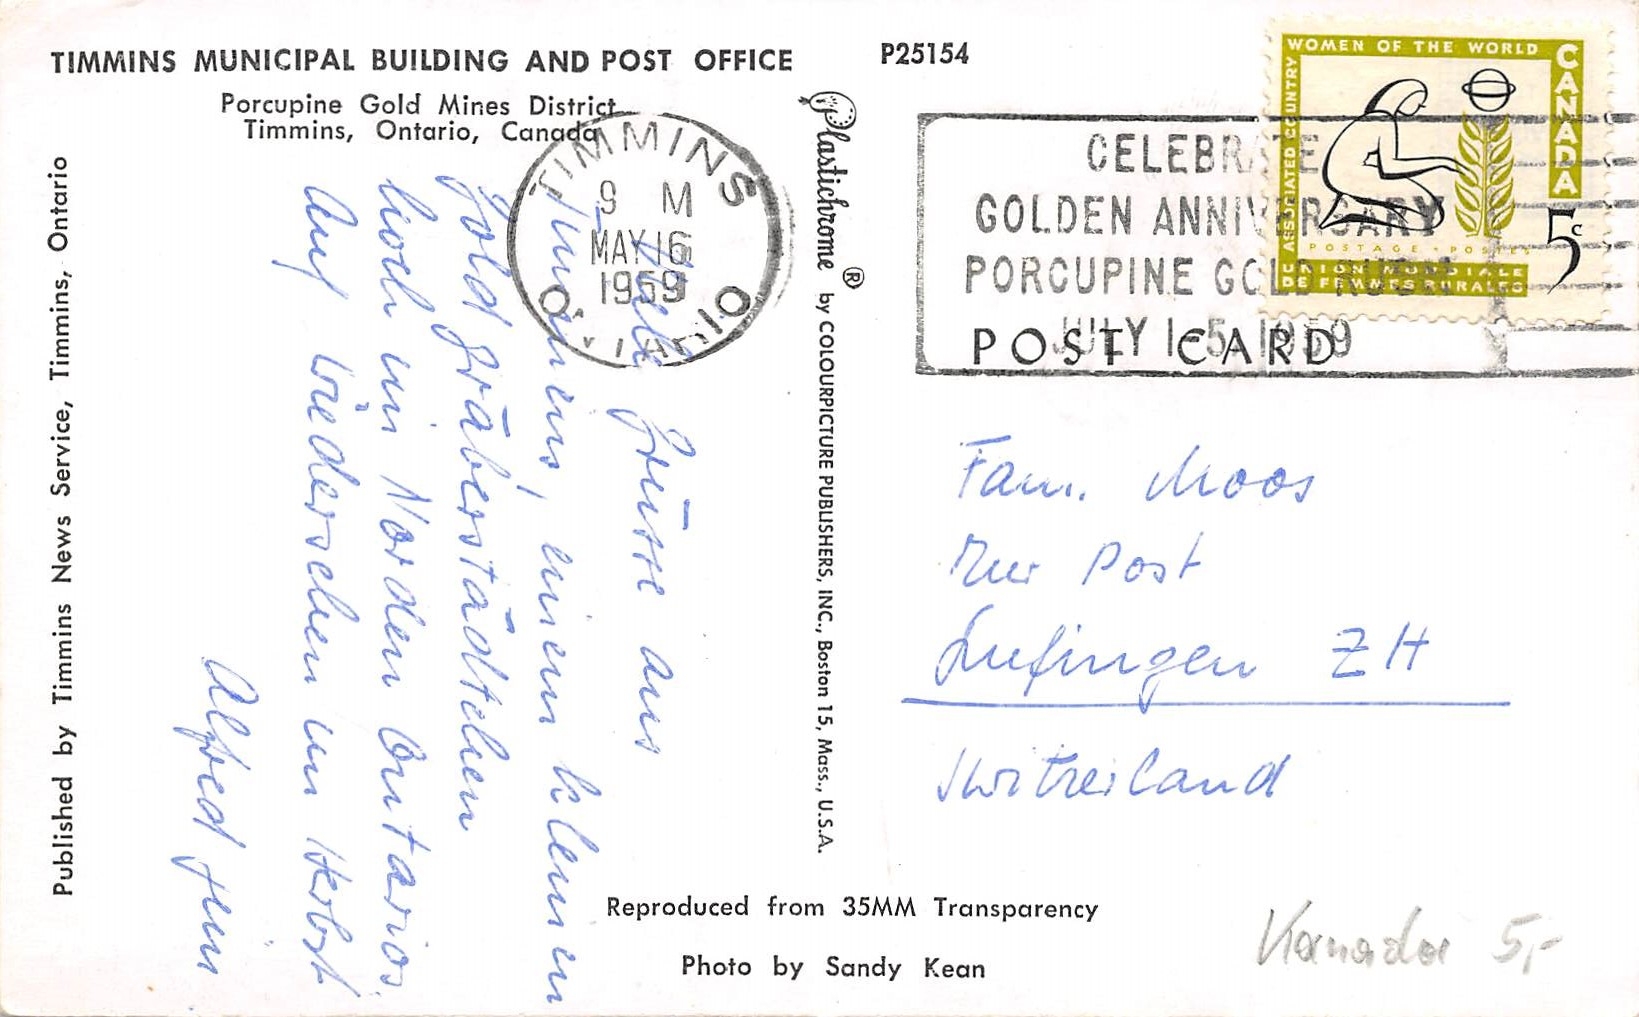 TIMMINS MUNICIPAL BUILDING AND POST OFFICE
Porcupine Gold Mines District
Timmins, Ontario, Canada
P25154
Published by Timmins News Service, Timmins, Ontario
Plastichrome ® by COLOURPICTURE PUBLISHERS, INC., Boston 15, Mass., U.S.A.
TIMMINS
9 M
MAY 16
1959
ONTARIO
CELEBRATE
GOLDEN ANNIVERSARY
PORCUPINE GOLD RUSH
JULY 1-5, 1959
WOMEN OF THE WORLD
ASSOCIATED COUNTRY
CANADA
5c
POSTAGE • POSTES
UNION MONDIALE
DE FEMMES RURALES
POST CARD
Grüsse aus
Timmins, einem kleinen
Goldgräberstädtchen
hoch im Norden Ontarios.
Auf Wiedersehen im Herbst
Alfred jun
Fam. Moos
Zur Post
Lufingen ZH
Switzerland
Reproduced from 35MM Transparency
Photo by Sandy Kean
Kanada 5,-